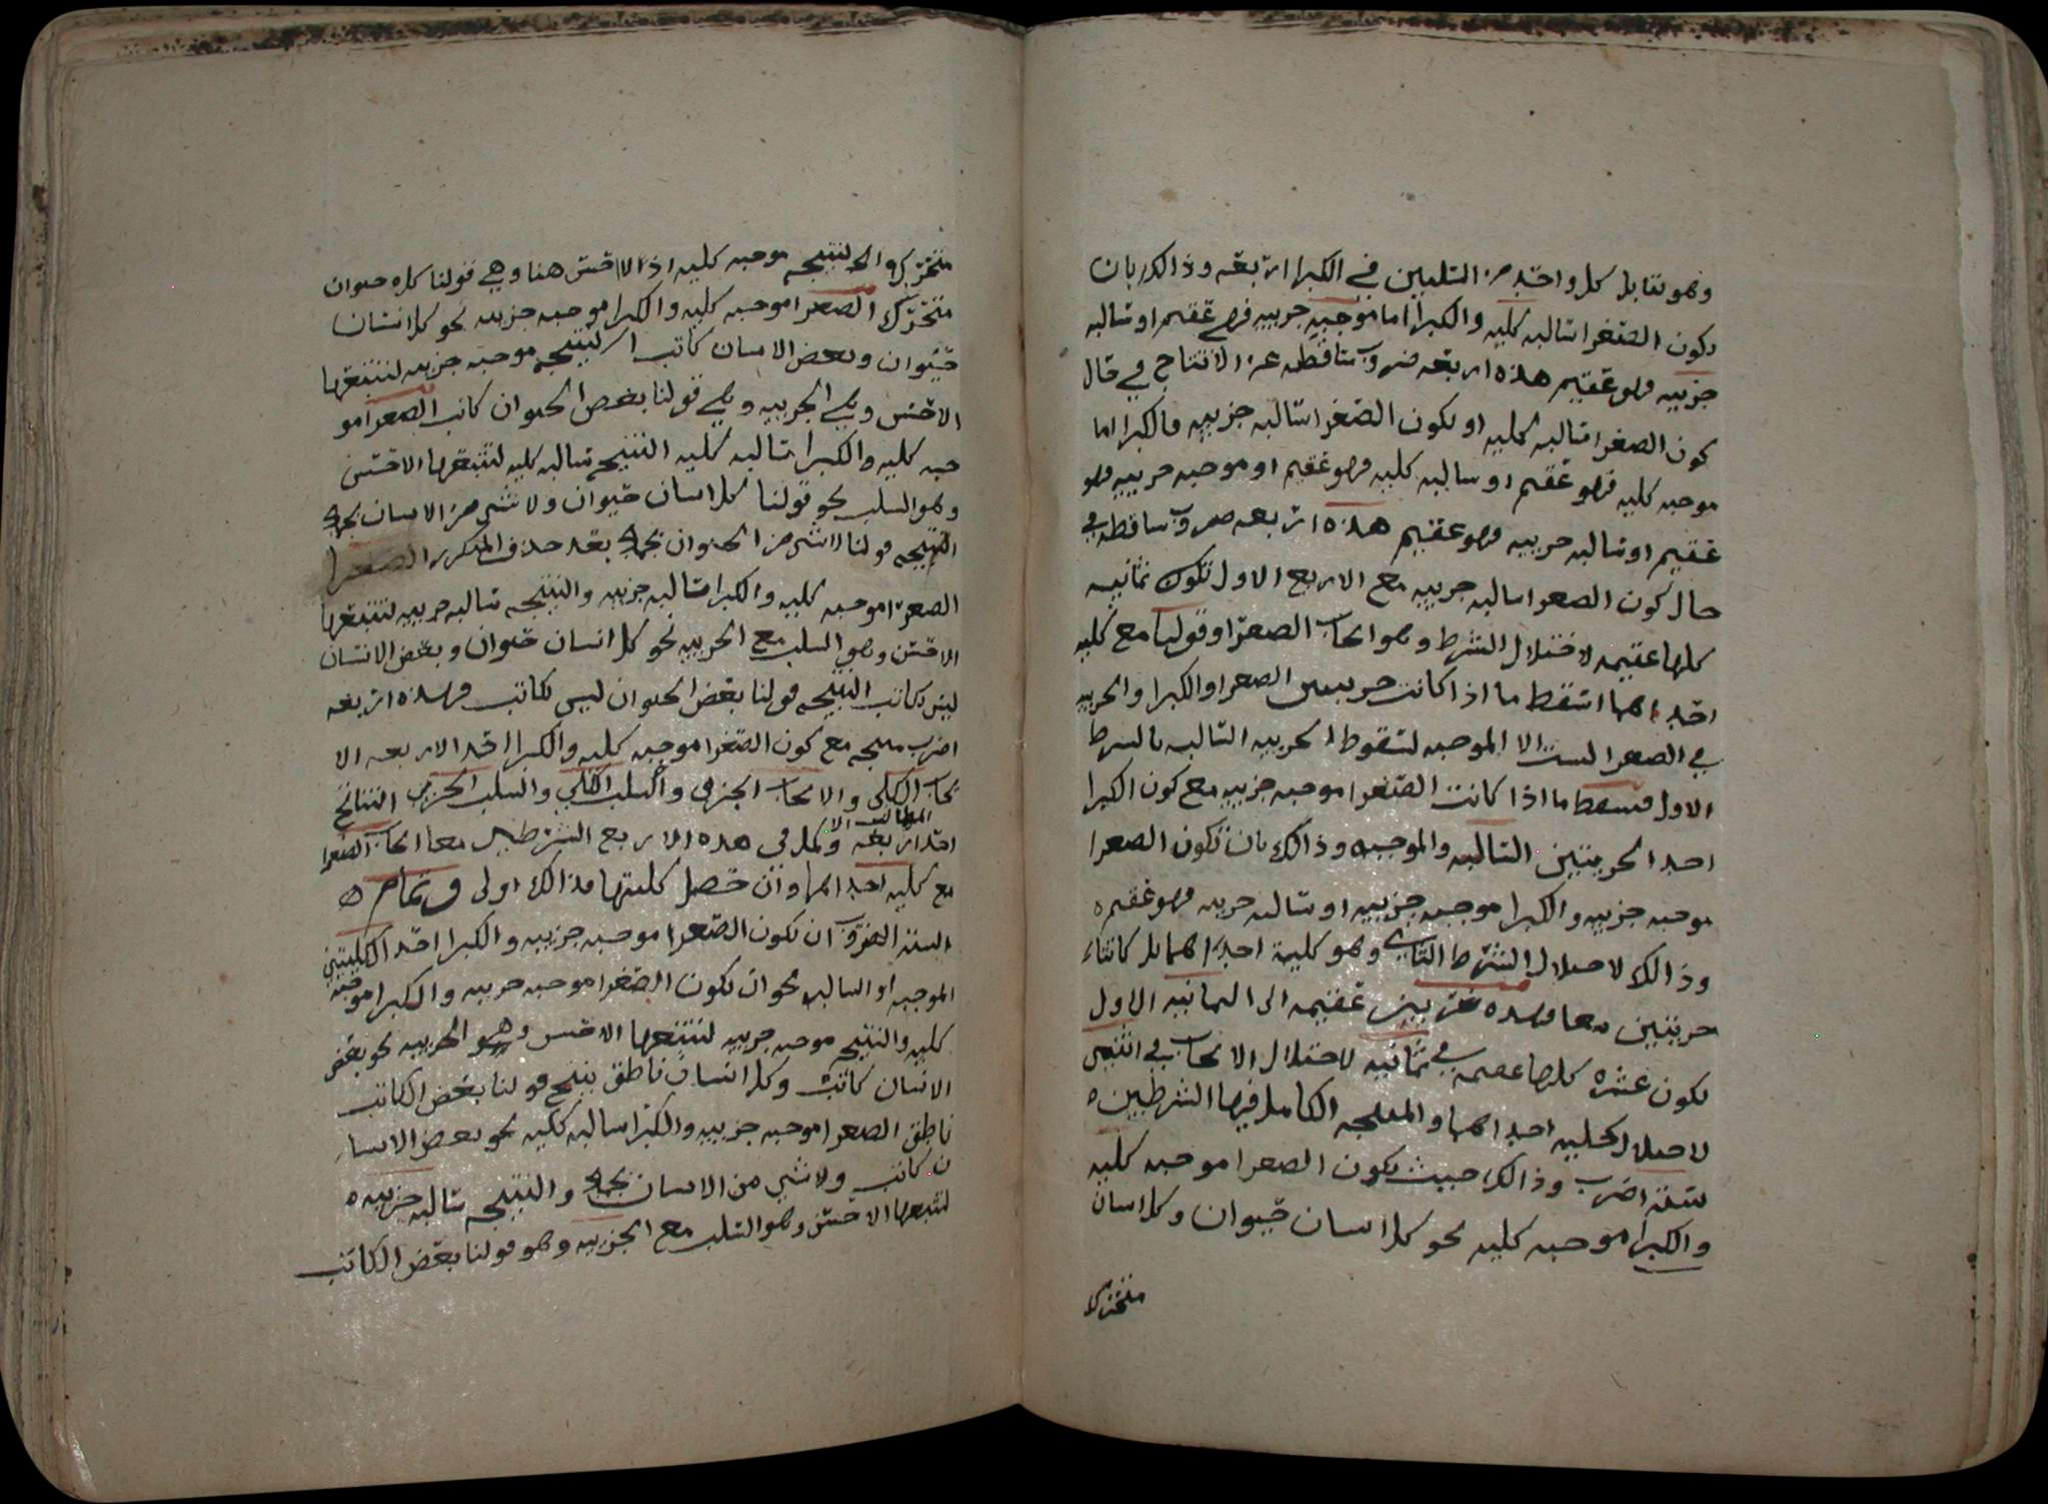 وهو تقابل كل واحد من السلبين في الكبرا اربعه وذالك بان
تكون الصغرا سالبه كليه والكبرا اما موجبه جزييه فهو عقيم او سالبه
جزييه فهو عقيم هذه اربعه ضروب ساقطه عن الانتاج في حال
كون الصغرا سالبه كليه او تكون الصغرا سالبه جزييه فالكبرا اما
موجبه كليه فهو عقيم او سالبه كليه فهو عقيم او موجبه جزييه فهو
عقيم او سالبه جزييه فهو عقيم هذه اربعه ضروب ساقطه في
حال كون الصغرا سالبه جزييه مع الاربع الاول تكون ثمانيه
كلها عقيمه لاختلال الشرط وهو ايجاب الصغرا وقولنا مع كليه
احداهما اسقط ما اذا كانت جزييتين الصغرا والكبرا والجزييه
في الصغرا ليست الا الموجبه لسقوط الجزييه السالبه بالشرط
الاول فسقط ما اذا كانت الصغرا موجبه جزييه مع كون الكبرا
احدا الجزييتين السالبه والموجبه وذالك بان تكون الصغرا
موجبه جزييه والكبرا موجبه جزييه او سالبه جزييه فهو عقيم ه
وذالك لاختلال الشرط الثاني وهو كلية احداهما بل كانتا
جزييتين معا فهذه ضربين عقيمه الى الثمانيه الاول
تكون عشره كلها عقيمه في ثمانيه لاختلال الايجاب في اثنتين
لاختلال كليه احداهما والمنتجه الكامل فيها الشرطين ه
سته اضرب وذالك حيث تكون الصغرا موجبه كليه
والكبرا موجبه كليه نحو كل انسان حيوان وكل انسان
متحرك
متحرك والنتيجه موجبه كليه اذ لا اخس هنا وهي قولنا كل حيوان
متحرك الصغرا موجبه كليه والكبرا موجبه جزييه نحو كل انسان
حيوان وبعض الانسان كاتب النتيجه موجبه جزييه لتتبعها
الاخس وهي الجزييه وهي قولنا بعض الحيوان كاتب الصغرا مو
جبه كليه والكبرا سالبه كليه النتيجه سالبه كليه لتتبعها الاخس
وهو السلب نحو قولنا كل انسان حيوان ولا شي من الانسان بحجر
النتيجه قولنا لا شي من الحيوان بحجر بعد حذف المتكرر الصغرا
الصغرا موجبه كليه والكبرا سالبه جزييه والنتيجه سالبه جزييه لتتبعها
الاخس وهي السلب مع الجزييه نحو كل انسان حيوان وبعض الانسان
ليس بكاتب النتيجه قولنا بعض الحيوان ليس بكاتب فهذه اربعه
اضرب منتجه مع كون الصغرا موجبه كليه والكبرا احد الاربعه الا
يجاب الكلي والايجاب الجزءي والسلب الكلي والسلب الجزءي النتائج
المطالب الا
احد اربعه وكمل في هذه الاربع الشرطين معا ايجاب الصغرا
مع كليه احداهما وان حصل كليتها فذالك اولى وتمام ه
الستة الضروب ان تكون الصغرا موجبه جزييه والكبرا احد الكليتين
الموجبه او السالبه نحو ان تكون الصغرا موجبه جزييه والكبرا موجبه
كليه والنتيجه موجبه جزييه لتتبعها الاخس وهو الجزييه نحو بعض
الانسان كاتب وكل انسان ناطق ينتج قولنا بعض الكاتب
ناطق الصغرا موجبه جزييه والكبرا سالبه كليه نحو بعض الانسا
ن كاتب ولا شي من الانسان بحجر والنتيجه سالبه جزييه ه
لتتبعها الاخس وهو السلب مع الجزييه وهو قولنا بعض الكاتب